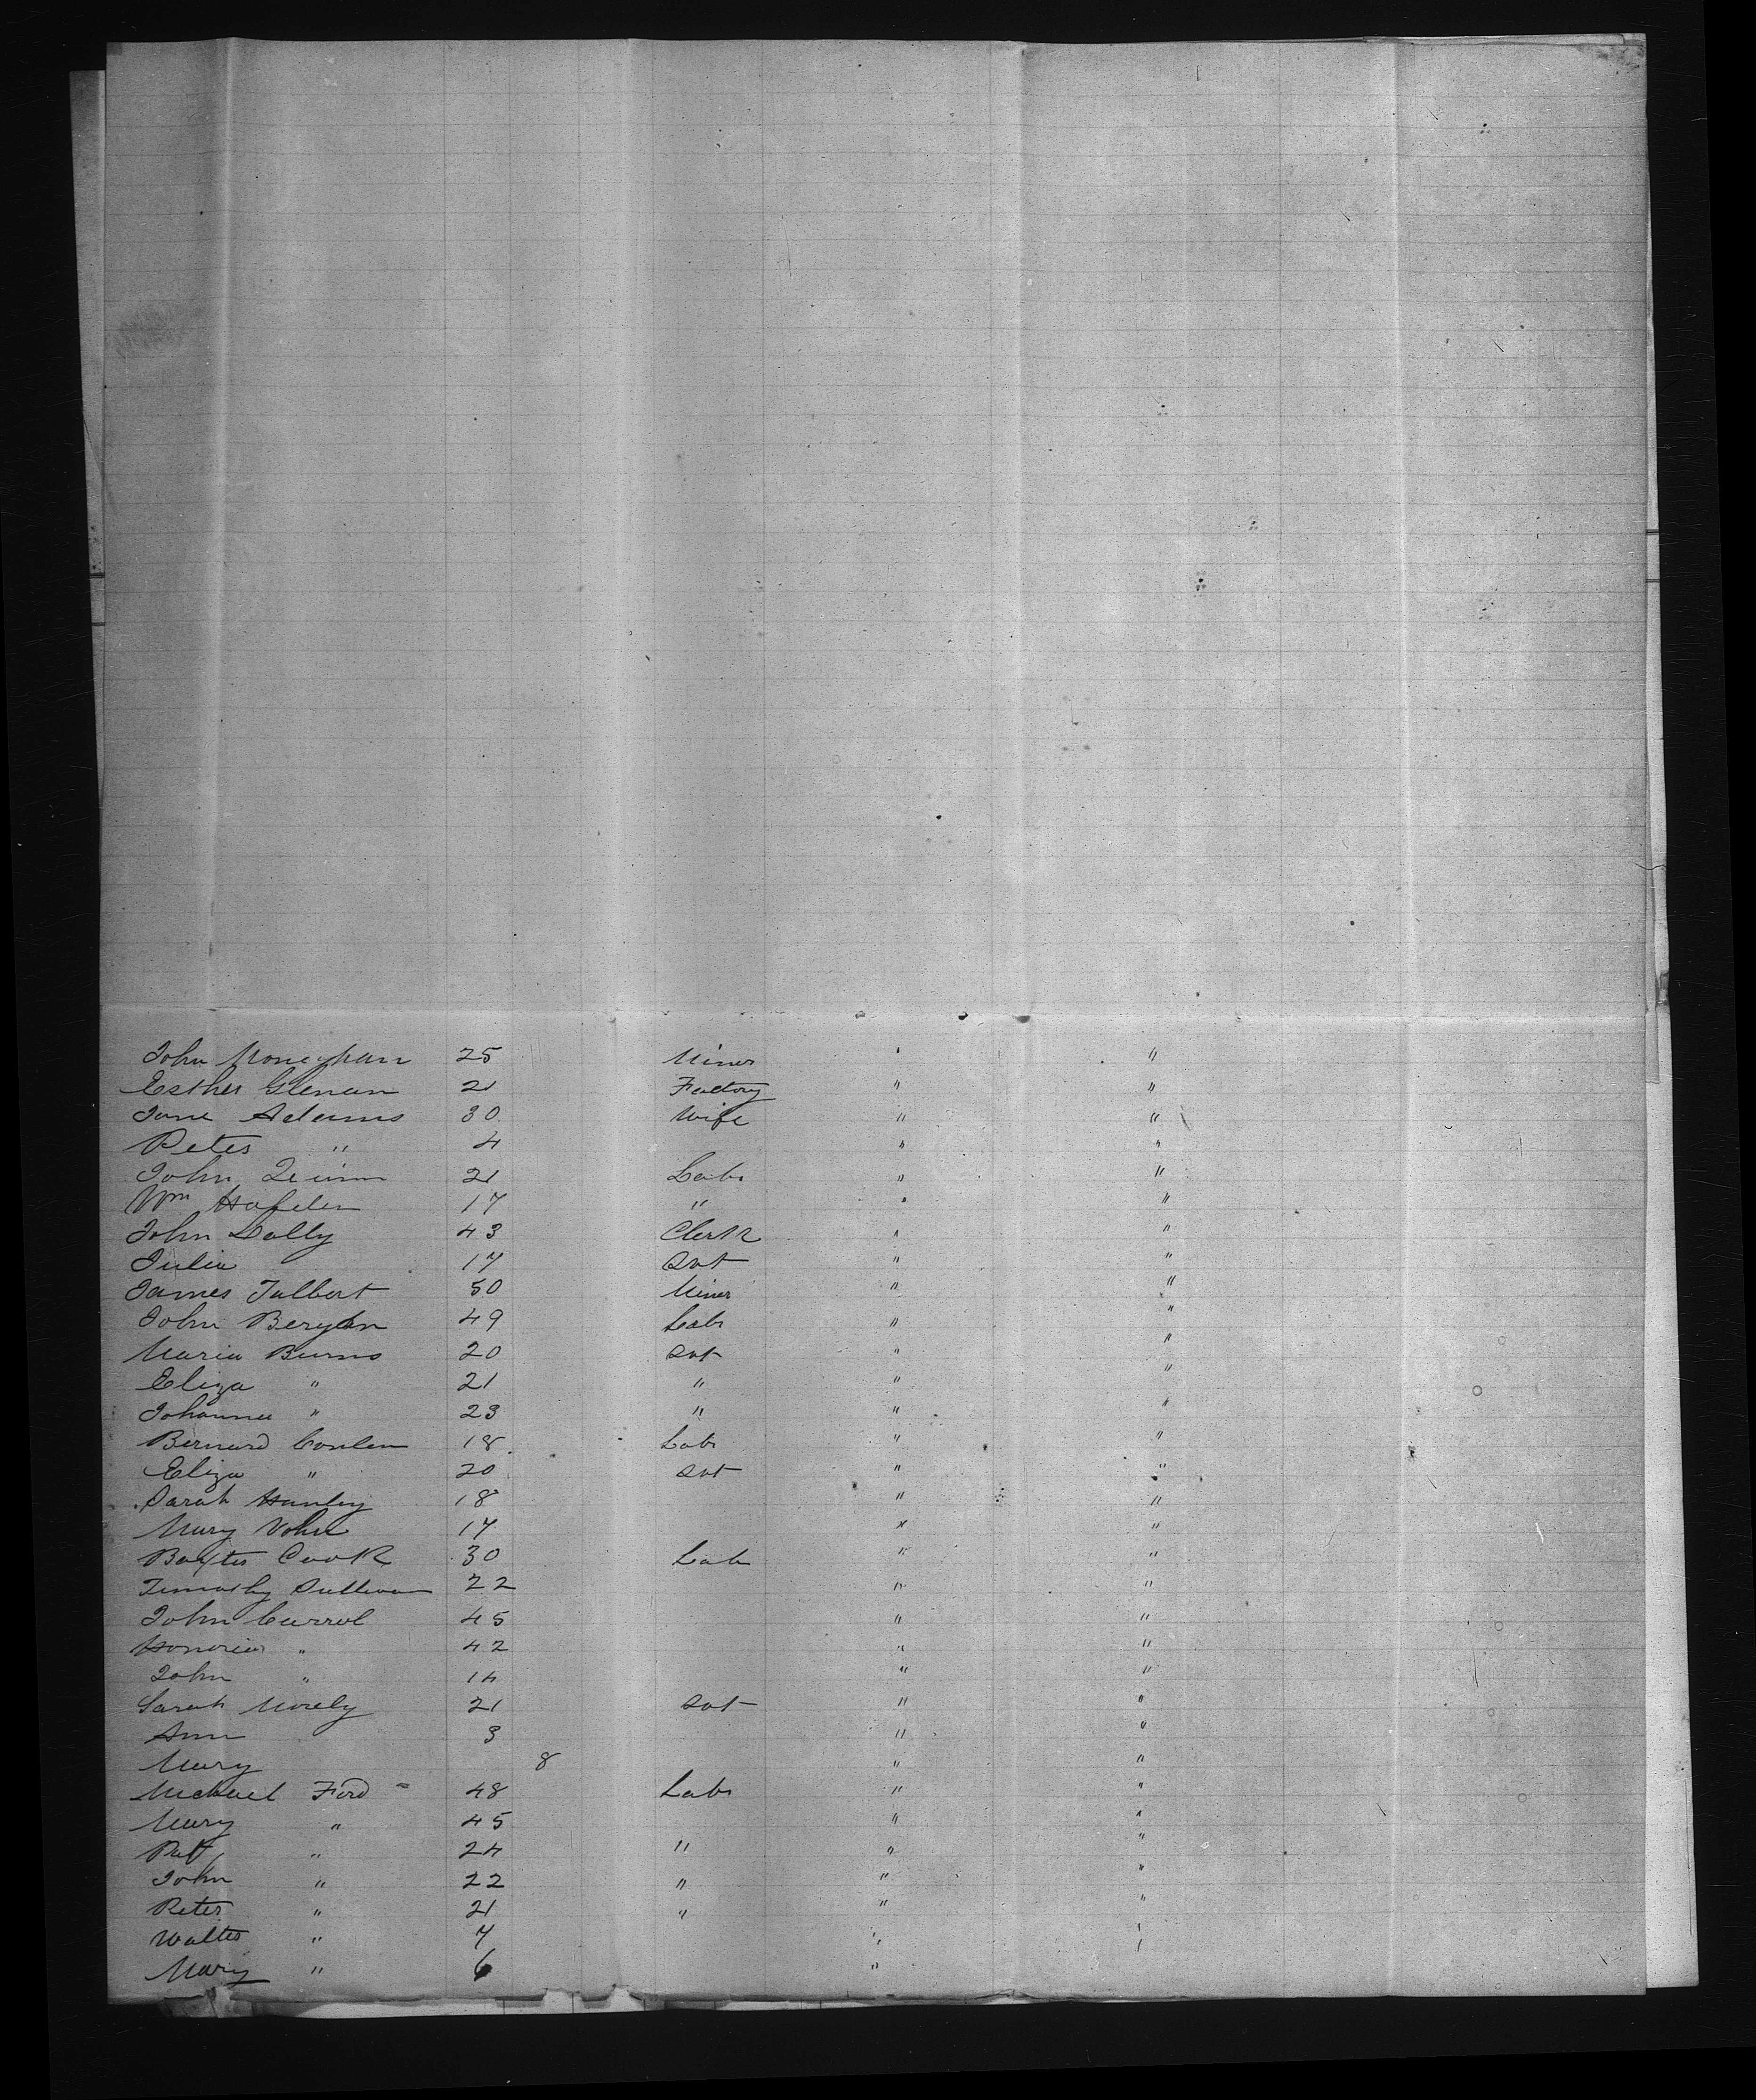 John Moneghan 25 Miner " "
Esther Glenan 21 Factory " "
Jane Adams 30 Wife " "
Peter " 4 " "
John Quinn 21 Labr " "
Wm 17 " " "
John Dally 43 Clerk " "
Julia 17 Svt " "
James Talbert 50 Miner " "
John 49 Labr " "
Maria Burns 20 Svt " "
Eliza " 21 " " "
Johanna " 23 " " "
Bernard Conlen 18 Labr " "
Eliza " 20 Svt " "
Sarah Hanley 18 " "
Mary 17 " "
Baxter Cook 30 Lab " "
Timothy Sullivan 22 " "
John Carrol 45 " "
Honoria " 42 " "
John " 14 " "
Sarah Morely 21 Svt " "
Ann 3 " "
Mary 8 " "
Michael Ford 48 Labr " "
Mary " 45 " "
Pat " 24 " " "
John " 22 " " "
Peter " 21 " " "
Walter " 7 " "
Mary " 6 "